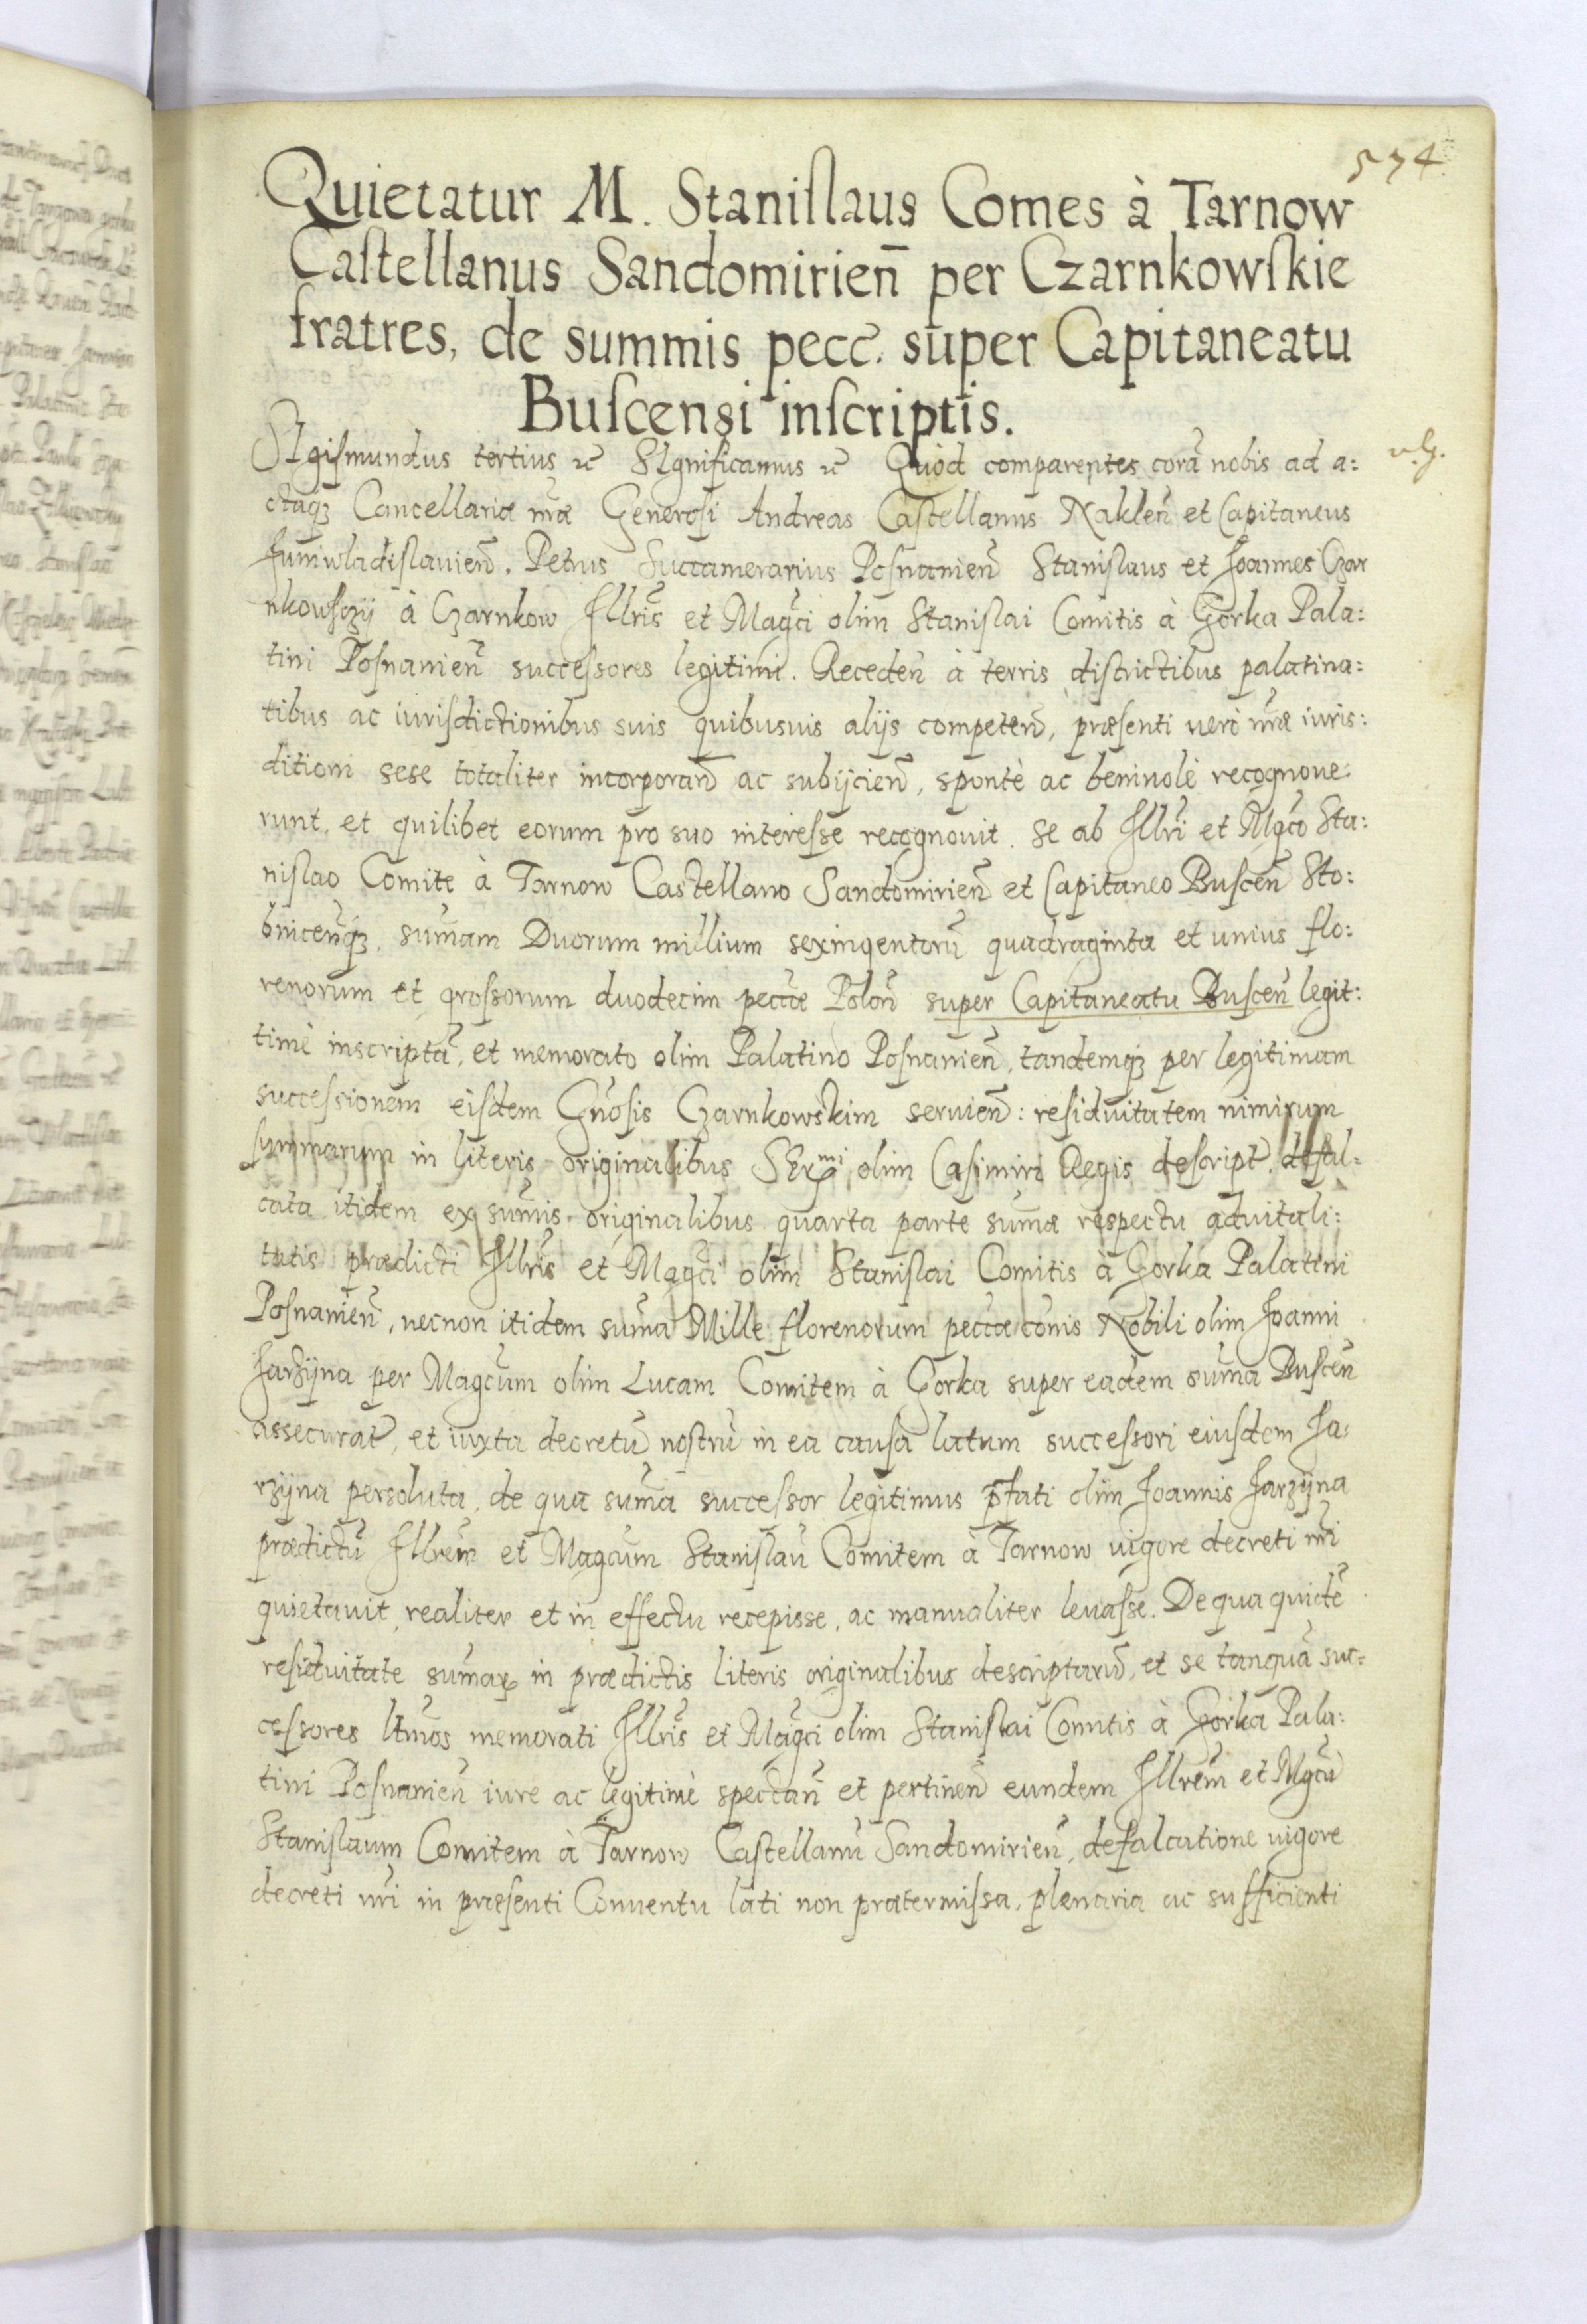 574
Quietatur M. Stanislaus Comes à Tarnow
Castellanus Sandomirieñ per Czarnkowskie
fratres, de summis pecc. super Capitaneatu
Buscensi inscriptis.
SIgismundus tertius etc SIgnificamus etc Quòd comparentes corã nobis ad a:
ctaqȝ Cancellariæ nr̃æ Generosi Andreas Castellanus Nakleñ et Capitaneus
Juniwladislauieñ. Petrus Succamerarius Posnanieñ Stanislaus et Joannes Czar
nkowsczÿ à Czarnkow Illris̃ et Magc̃i olim Stanislai Comitis à Gorka Pala:
tini Posnanieñ successores legitimi. Recedeñ à terris districtibus palatina:
tibus ac iurisdictionibus suis quibusuis alijs competeñ, præsenti verò nr̃æ iuris:
ditioni sese totaliter incorporañ ac subijcieñ, spontè ac beniuolè recognoue:
runt, et quilibet eorum pro suo interesse recognouit. Se ab Illrĩ et Mgc̃o Sta:
nislao Comite à Tarnow Castellano Sandomirieñ et Capitaneo Busceñ Sto:
bniceñqȝ, sum̃am Duorum millium sexingentorũ quadraginta et unius flo:
renorum et grossorum duodecim pecc̃æ Poloñ super Capitaneatu Busceñ legit:
timè inscriptã, et memorato olim Palatino Posnanieñ, tandemqȝ per legitimam
successionem eisdem Gño̅sis Czarnkowskim seruieñ: residuitatem nimirum
summarum in literis originalibus SErmi olim Casimiri Regis descript, defal:
cata itidem ex sum̃is originalibus quarta parte sum̃æ respectu aduitali:
tatis prædicti Illris̃ et Magc̃i olim Stanislai Comitis à Gorka Palatini
Posnanieñ, necnon itidem sum̃a Mille florenorum pecc̃æ cõnis Nobili olim Joanni
Jarzÿna per Magc̃um olim Lucam Comitem à Gorka super eadem sum̃a Busceñ
assecurat, et iuxta decretũ nostrũ in ea causa latum successori eiusdem Ja:
rzÿna persoluta, de qua sum̃a successor legitimus p̃fati olim Joannis Jarzÿna
prædictũ Illrem̃ et Magc̃um Stanislaũ Comitem à Tarnow uigore decreti nr̃i
quietauit, realiter et in effectu recepisse, ac manualiter leuasse. De qua quidẽ
residuitate sum̃aꝝ in prædictis literis originalibus descriptarũ, et se tanquã suc:
cessores ltm̃os memorati Illris̃ et Magc̃i olim Stanislai Comitis à Gorka Pala:
tini Posnanieñ iure ac legitimè spectañ et pertineñ eundem Illrem̃ et Mgc̃ũ
Stanislaum Comitem à Tarnow Castellanũ Sandomirieñ, defalcatione uigore
decreti nr̃i in præsenti Conuentu lati non prætermissa, plenaria ac sufficienti